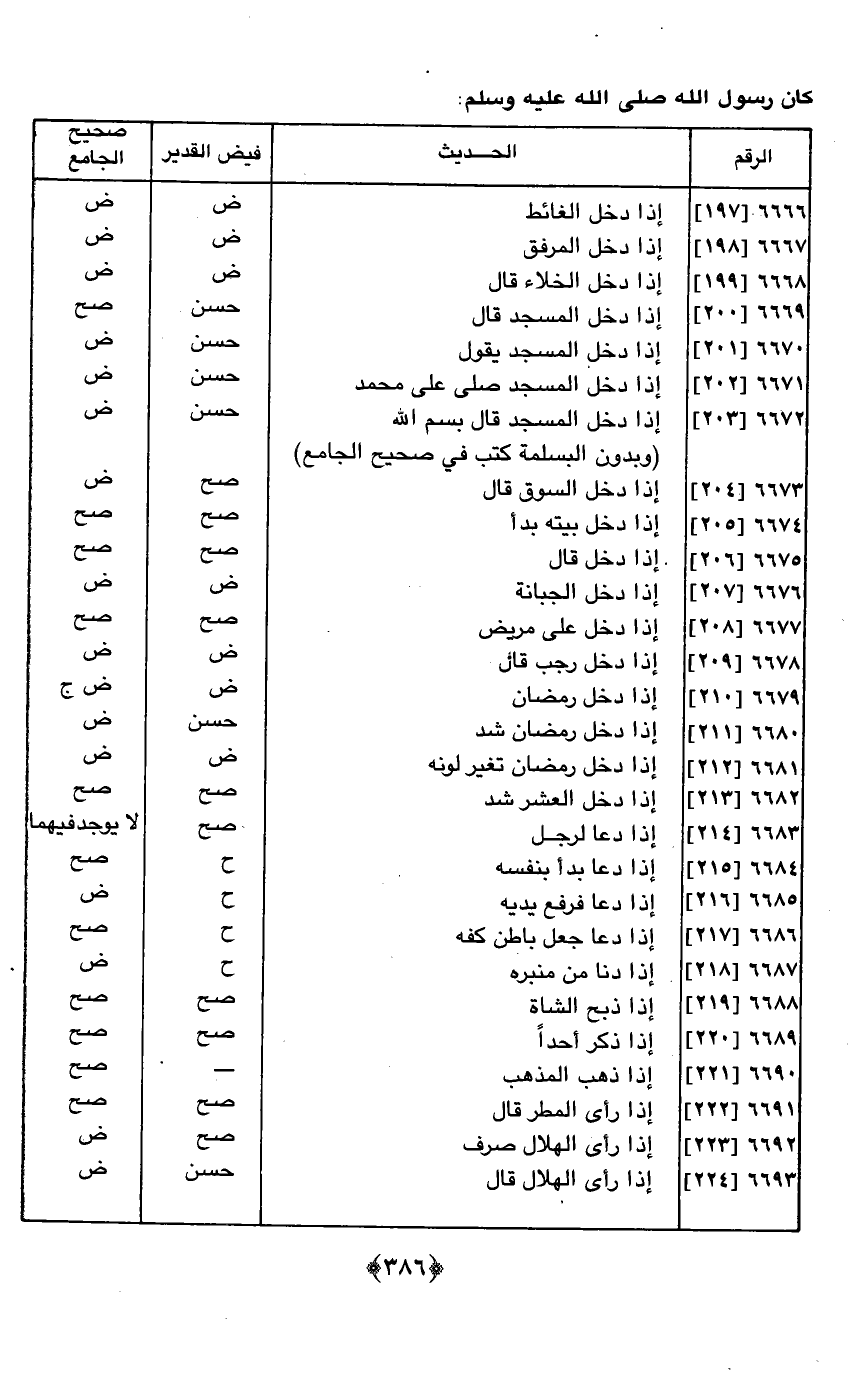 كان رسول الله صلى الله عليه وسلم:
الرقم الحـــديث فيض القدير صحيح الجامع
٦٦٦٦ [١٩٧] إذا دخل الغائط ض ض
٦٦٦٧ [١٩٨] إذا دخل المرفق ض ض
٦٦٦٨ [١٩٩] إذا دخل الخلاء قال ض ض
٦٦٦٩ [٢٠٠] إذا دخل المسجد قال حسن صح
٦٦٧٠ [٢٠١] إذا دخل المسجد يقول حسن ض
٦٦٧١ [٢٠٢] إذا دخل المسجد صلى على محمد حسن ض
٦٦٧٢ [٢٠٣] إذا دخل المسجد قال بسم الله حسن ض
(وبدون البسلمة كتب في صحيح الجامع)
٦٦٧٣ [٢٠٤] إذا دخل السوق قال صح ض
٦٦٧٤ [٢٠٥] إذا دخل بيته بدأ صح صح
٦٦٧٥ [٢٠٦] إذا دخل قال صح صح
٦٦٧٦ [٢٠٧] إذا دخل الجبانة ض ض
٦٦٧٧ [٢٠٨] إذا دخل على مريض صح صح
٦٦٧٨ [٢٠٩] إذا دخل رجب قال ض ض
٦٦٧٩ [٢١٠] إذا دخل رمضان ض ض ج
٦٦٨٠ [٢١١] إذا دخل رمضان شد حسن ض
٦٦٨١ [٢١٢] إذا دخل رمضان تغير لونه ض ض
٦٦٨٢ [٢١٣] إذا دخل العشر شد صح صح
٦٦٨٣ [٢١٤] إذا دعا لرجـل صح لا يوجدفيهما
٦٦٨٤ [٢١٥] إذا دعا بدأ بنفسه ح صح
٦٦٨٥ [٢١٦] إذا دعا فرفع يديه ح ض
٦٦٨٦ [٢١٧] إذا دعا جعل باطن كفه ح صح
٦٦٨٧ [٢١٨] إذا دنا من منبره ح ض
٦٦٨٨ [٢١٩] إذا ذبح الشاة صح صح
٦٦٨٩ [٢٢٠] إذا ذكر أحداً صح صح
٦٦٩٠ [٢٢١] إذا ذهب المذهب — صح
٦٦٩١ [٢٢٢] إذا رأى المطر قال صح صح
٦٦٩٢ [٢٢٣] إذا رأى الهلال صرف صح ض
٦٦٩٣ [٢٢٤] إذا رأى الهلال قال حسن ض
﴿٣٨٦﴾